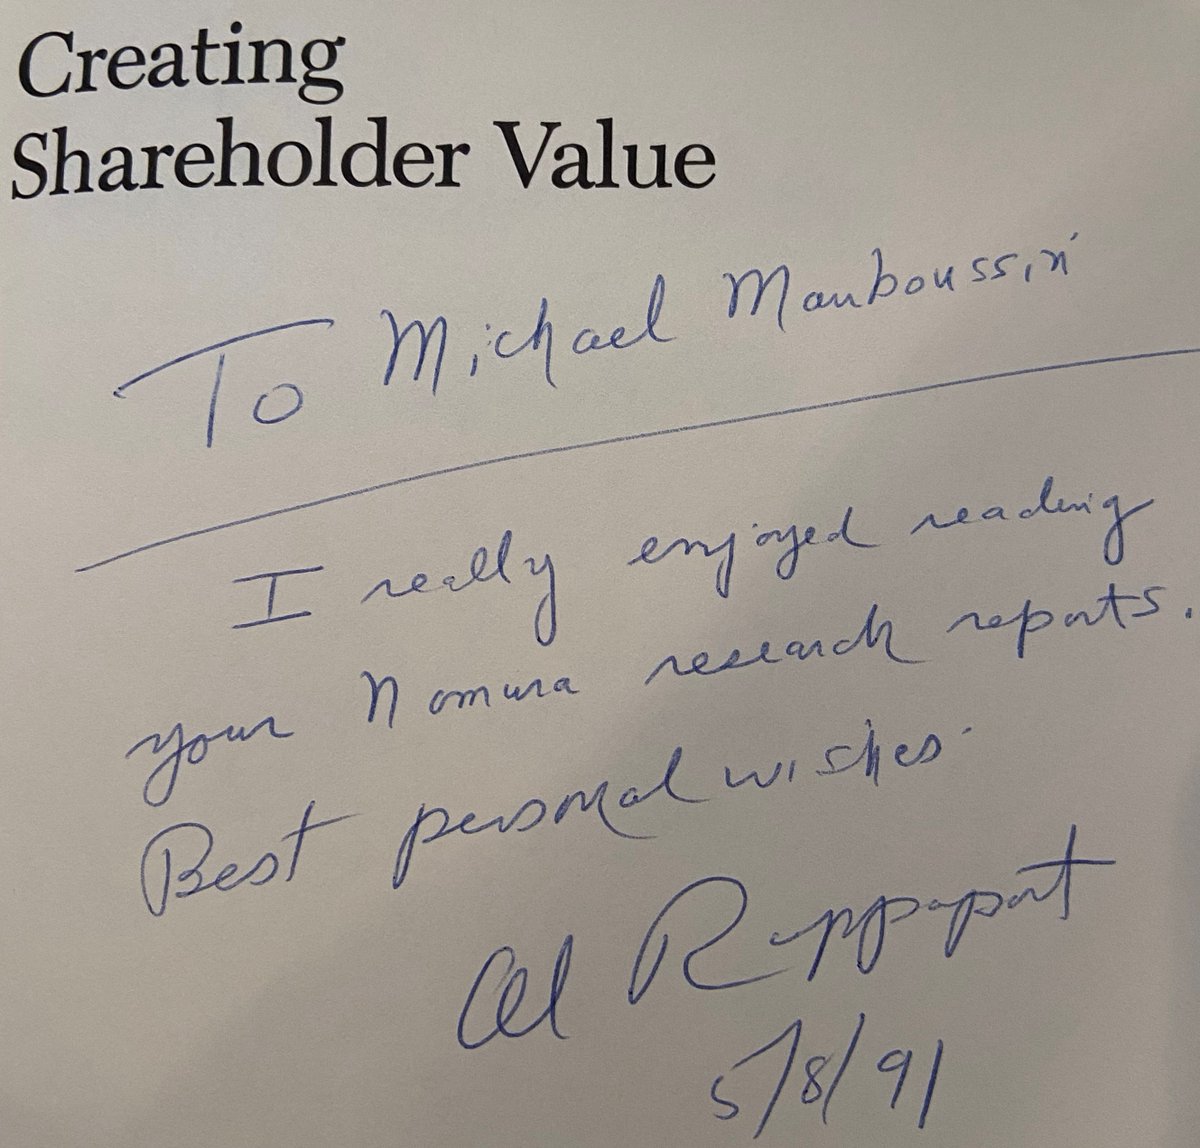 Creating
Shareholder Value
To Michael Mauboussin
I really enjoyed reading
your Nomura research reports.
Best personal wishes.
Al Rappaport
5/8/91